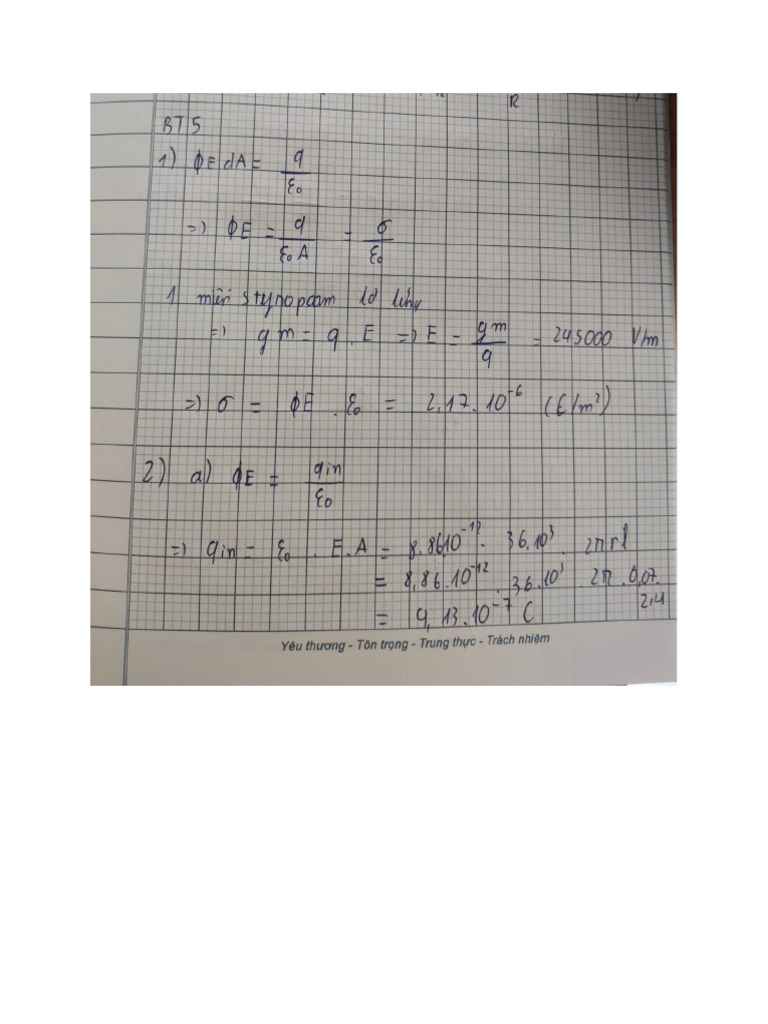 R
BT5
1) ϕE dA = q/ε₀
=> ϕE = q/(ε₀ A) = σ/ε₀
1 miếng lơ lửng
=> gm = q . E => E = gm/q = 245000 V/m
=> σ = ϕE . ε₀ = 2,17.10⁻⁶ (C/m²)
2) a) ϕE = qin/ε₀
=> qin = ε₀ . E.A = 8,8610⁻¹² . 36.10³ . 2πrl
= 8,86.10⁻¹² . 36.10³ . 2π . 0,07. 2,4
= 9,13.10⁻⁷ C
Yêu thương - Tôn trọng - Trung thực - Trách nhiệm